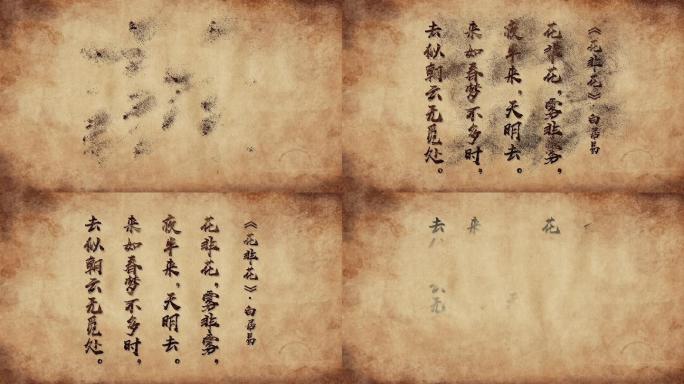 《花非花》·白居易
花非花，雾非雾，
夜半来，天明去。
来如春梦不多时，
去似朝云无觅处。
《花非花》·白居易
花非花，雾非雾，
夜半来，天明去。
来如春梦不多时，
去似朝云无觅处。
花
来
去
无